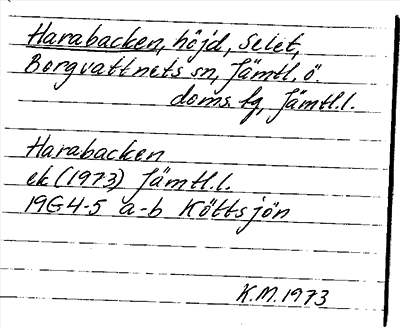 Harabacken, höjd, Selet,
Borgvattnets sn, Jämtl. ö
doms. fg, Jämtl.l.
Harabacken
ek (1973) Jämtl.l.
19G 4-5 a-b Köttsjön
K.M. 1973